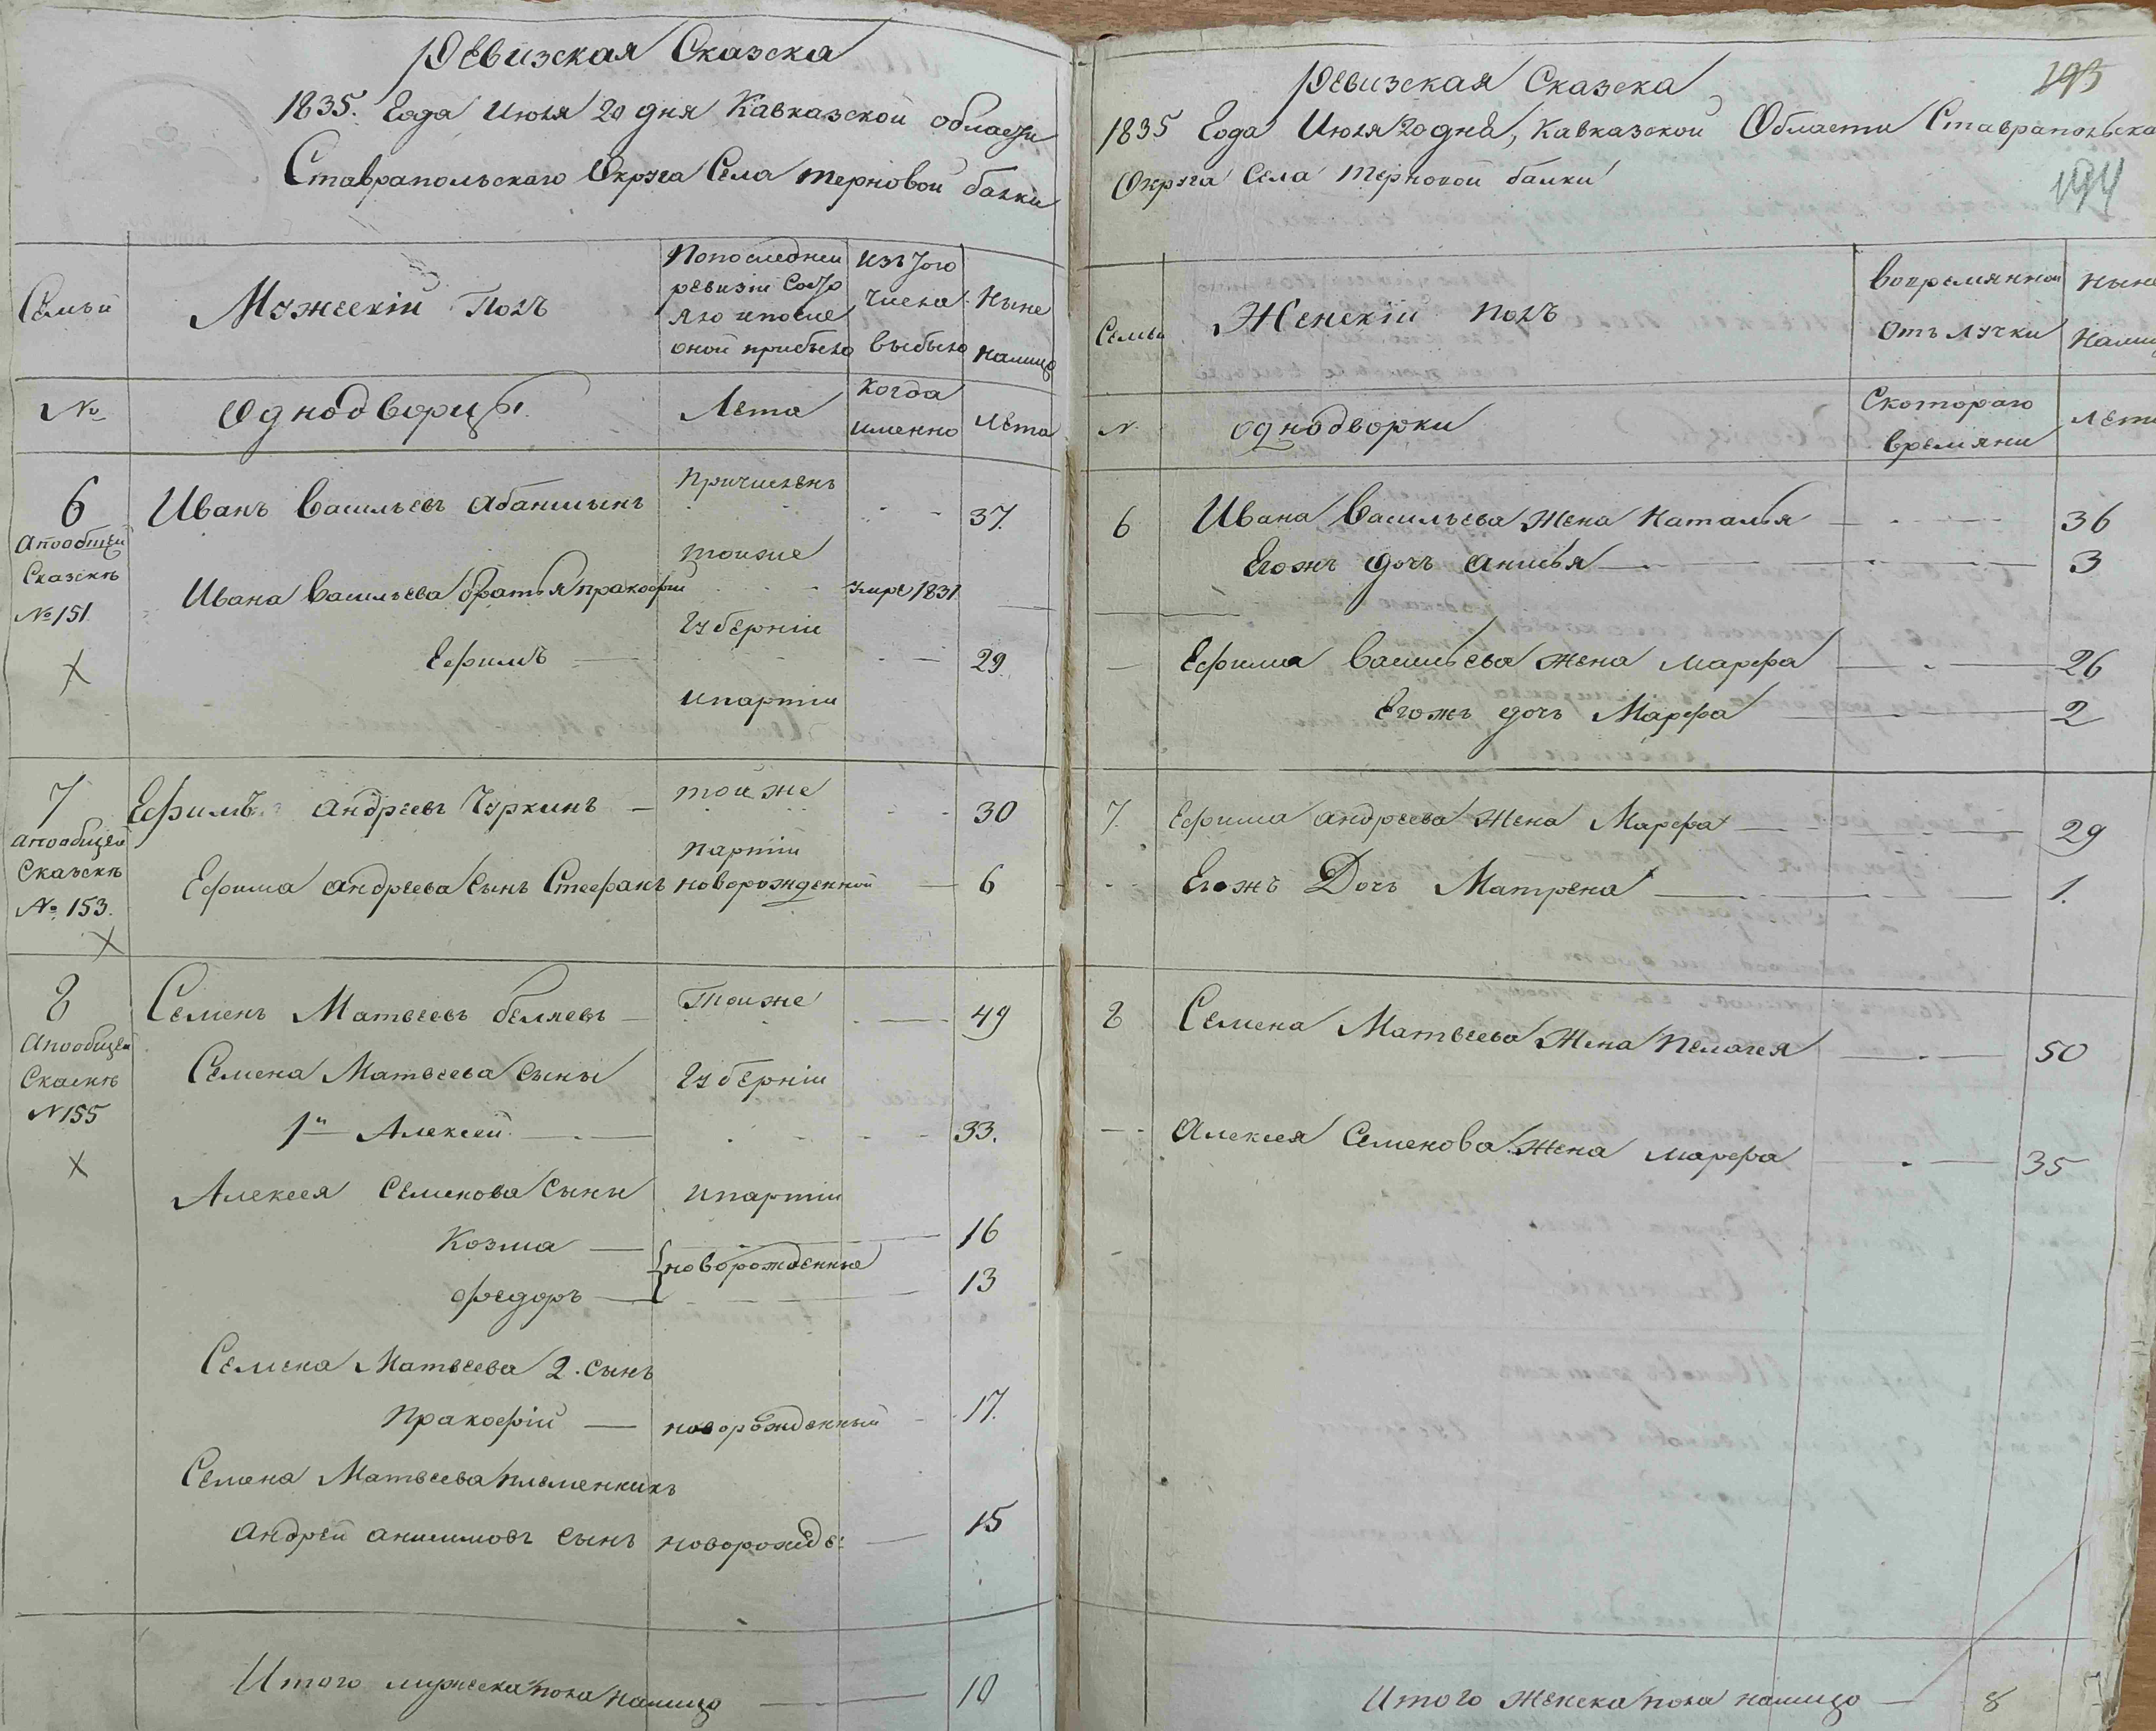 Ревизская Сказска
1835. Года Июля 20 дня Кавказской области
Ставрапольскаго Округа Села терновой балки
Семьи
Мужескій Полъ
Попоследней
ревизіи Состо
яло ипосле
оной прибыло
Изътого
числа
выбыло
Ныне
налицо
№
Однодворцы.
Лета
Когда
именно
Лета
6
Апообщей
Сказскѣ
№ 151
Х
Иванъ Васильевъ Абаншынъ
Причисленъ
37.
тойже
Ивана Васильева братья пракофій
умре 1831
Губерніи
Ефимъ
29.
ипартіи
7
апообщей
Сказскѣ
№ 153.
Х
Ефимъ андреевъ Чуркинъ
тойже
30
партіи
Ефима андреева Сынъ Стефанъ новорожденной 6
8
Апообщей
Скаскѣ
№155
Х
Семенъ Матвеевъ беляевъ
Тойже
49
Семена Матвеева Сыны
Губерніи
1й Алексей
33.
Алексея Семенова Сыны
ипартіи
Козма
16
новорожденные
федоръ
13
Семена Матвеева 2. сынъ
Пракофій новорожденный 17.
Семена Матвеева племенникъ
андрей анисимовъ сынъ новорожде: 15
Итого мужеска пола налицо 10
193
Ревизская Сказска
1835 Года Июля 20 дня, Кавказской Области Ставрапольска
194
Округа Села Терновой балки
Семьи
Женскій полъ
вовремянной
отълучки
Ныне
Налиц
№
однодворки
Скотораго
времяни
лета
6 Ивана Васильева Жена Наталья 36
Егожъ дочь анисья 3
Ефима Васильева жена марфа 26
Егожъ дочь Марфа 2
7. Ефима андреева Жена Марфа 29
Егожъ Дочь Матрена 1.
8 Семена Матвеева Жена пелагея 50
алексея Семенова жена марфа 35
Итого женска пола налицо 8